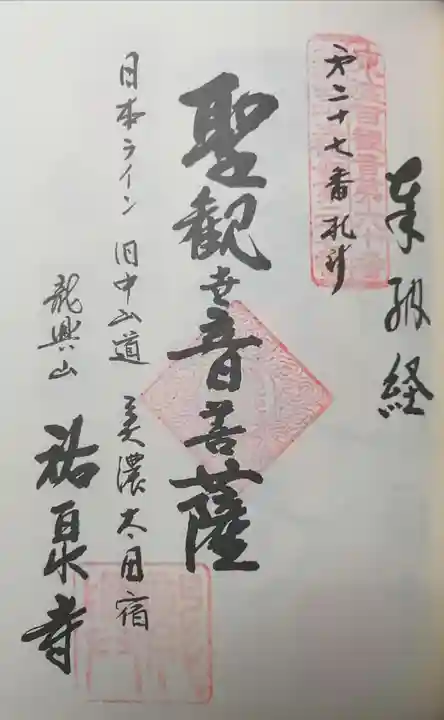 奉納経
第二十七番札所
聖観世音菩薩
日本ライン 旧中山道 美濃太田宿
龍興山
祐泉寺